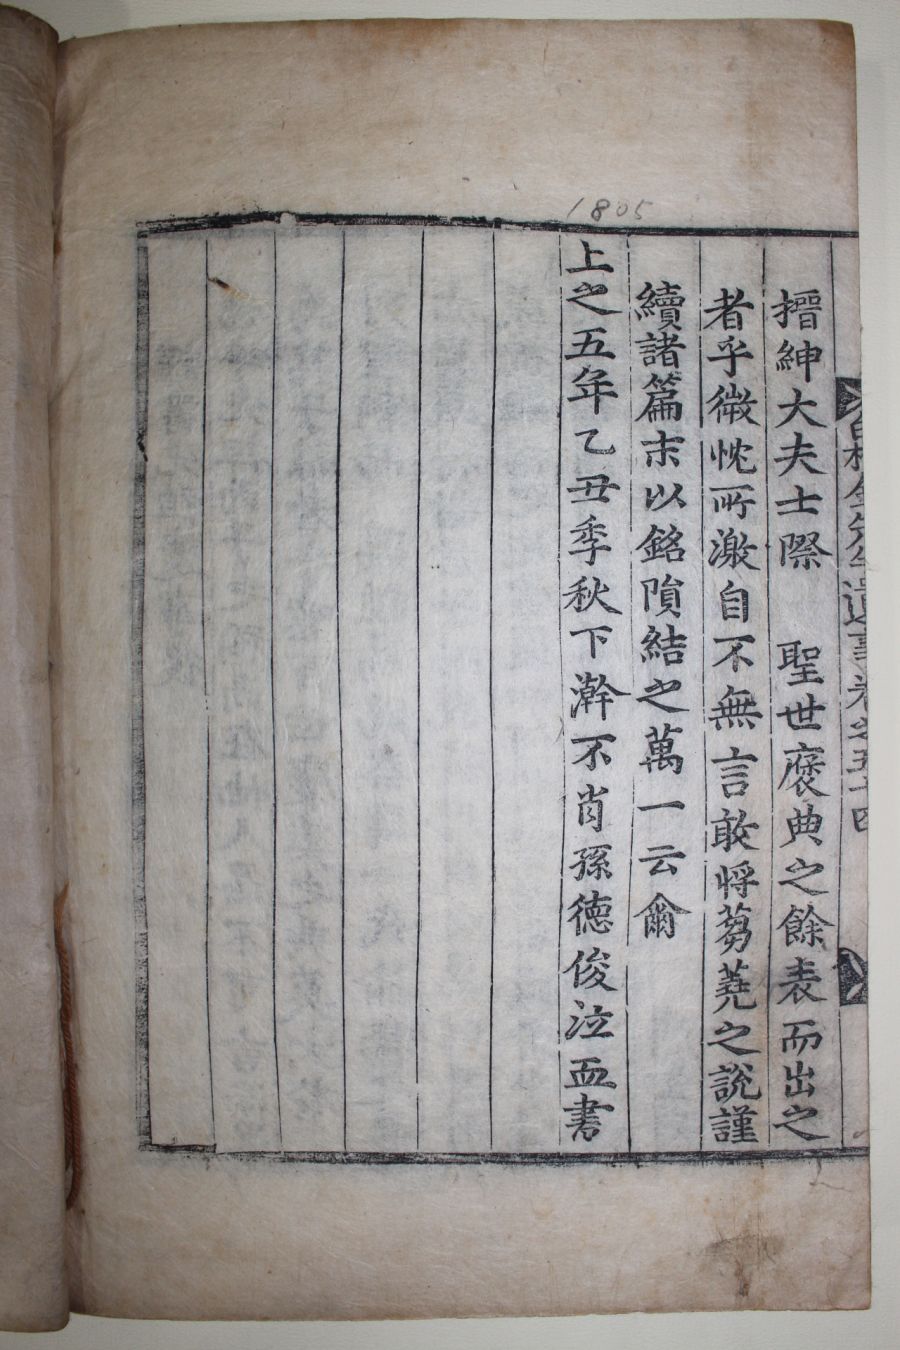 1805
搢紳大夫士際 聖世褒典之餘表而出之
者乎微忱所激自不無言敢将蒭蕘之說謹
續諸篇末以銘隕結之萬一云爾
上之五年乙丑季秋下澣不肖孫德俊泣血書
先生遺事卷之五十四